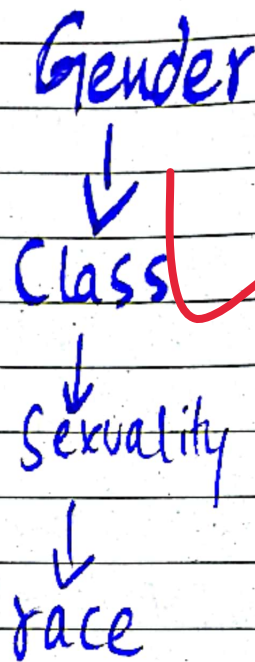 Gender
↓
Class
↓
Sexuality
↓
race